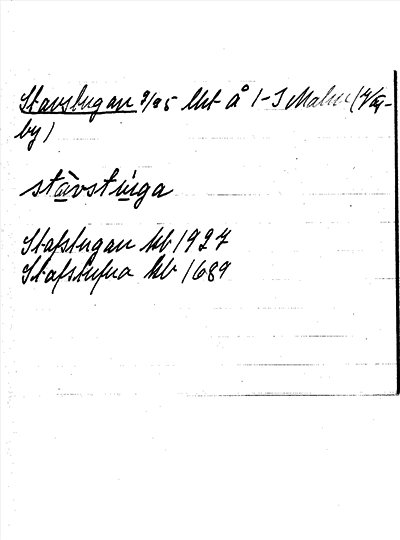 Stavstugan 9/85 lht å 1-3 Malm (Väg-
by)
stàvstúga
Stafstugan kb 1927
Stafstufva kb 1689